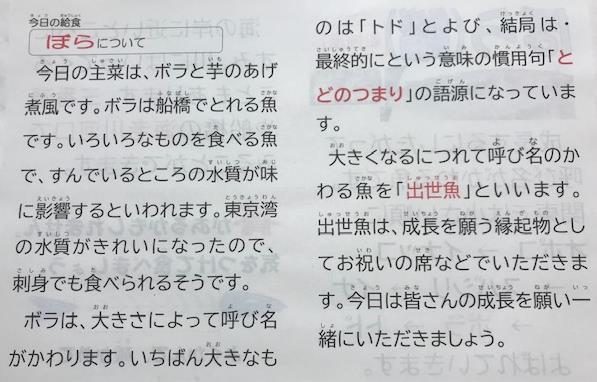 今日の給食
ぼらについて
今日の主菜は、ボラと芋のあげ
煮風です。ボラは船橋でとれる魚
です。いろいろなものを食べる魚
で、すんでいるところの水質が味
に影響するといわれます。東京湾
の水質がきれいになったので、
刺身でも食べられるそうです。
ボラは、大きさによって呼び名
がかわります。いちばん大きなも
のは「トド」とよび、結局は・
最終的にという意味の慣用句「と
どのつまり」の語源になっていま
す。
大きくなるにつれて呼び名のか
わる魚を「出世魚」といいます。
出世魚は、成長を願う縁起物とし
てお祝いの席などでいただきま
す。今日は皆さんの成長を願い一
緒にいただきましょう。